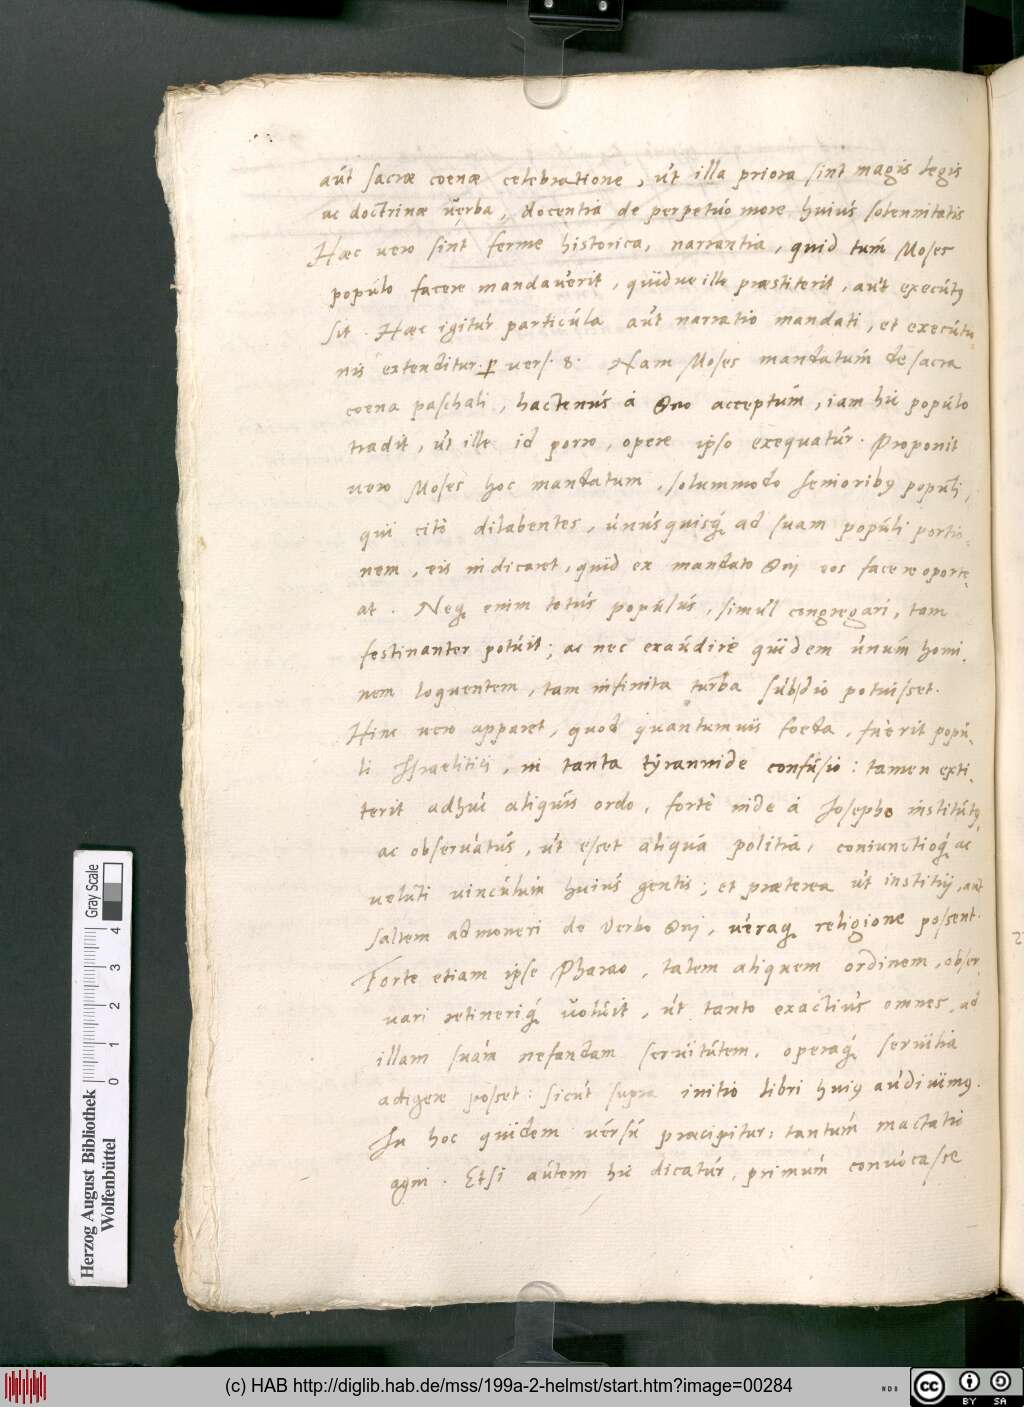 aút sacræ coenæ celebratione, út illa priora sint magis legis
ac doctrinæ verba, docentia de perpetúo more huiús solennitatis
Hæc vero sint ferme historica, narrantia, quid tum Moses
populo facere mandaverit, quidve ille præstiterit, aút executus
sit. Hæc igitúr particúla aút narratio mandati, et execútio-
nis extenditur vers. 8. Nam Moses mandatúm de sacra
coena paschali, hactenús á Dno acceptúm, iam hic populo
tradit, út ille id porro, opere ipso exequatúr. Proponit
vero Moses hoc mandatum, solummodo senioribus populi,
qui cito dilabentes, únúsquisq́ ad suam popúli portio-
nem, eis indicaret, quid ex mandato Dni eos facere oporte-
at. Neq enim totús popúlús, simúl congregari, tam
festinanter potúit; ac nec exaúdire quidem únúm homi-
nem loquentem, tam infinita turba súb dio potuisset.
Hinc vero apparet, quod quantumvis foeda, fúerit popú-
li Israelitici, in tanta tyrannide confúsio: tamen exti-
terit adhúc aliquis ordo, forte inde á Josepho institútus,
ac observatús, út esset aliqua politia, coniunctioq́ ac
velúti vincúlúm huiús gentis; et præterea út institui, aut
saltem admoneri de Verbo Dni, veraq religione possent.
Forte etiam ipse Pharao, talem aliquem ordinem, obser-
vari retineriq́ volúit, út tanto exactiús omnes, ad
illam suám nefandam servitútem, operaq́ servilia
adigere posset: sicút supra initio libri huius audivimus.
In hoc quidem vérsú præcipitur, tantum mactatio
agni. Etsi aútem hic dicatúr, primúm convocasse
Herzog August Bibliothek
Wolfenbüttel
0 1 2 3 4
Gray Scale
(c) HAB http://diglib.hab.de/mss/199a-2-helmst/start.htm?image=00284
cc BY SA